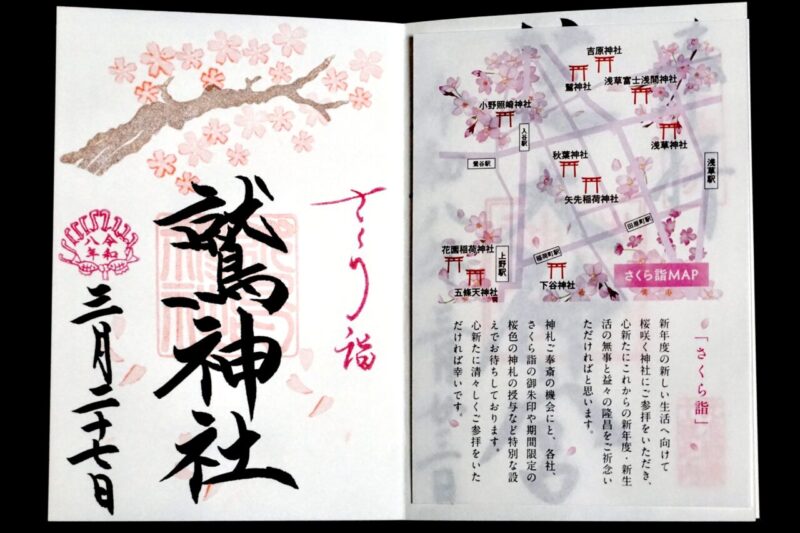 さくら詣
鷲神社
令和
八年
三月二十七日
吉原神社
鷲神社
浅草富士浅間神社
小野照崎神社
入谷駅
浅草神社
鶯谷駅
秋葉神社
浅草駅
矢先稲荷神社
田原町駅
花園稲荷神社
上野駅
稲荷町駅
五條天神社
下谷神社
さくら詣MAP
「さくら詣」
新年度の新しい生活へ向けて
桜咲く神社にご参拝をいただき、
心新たにこれからの新年度・新生
活の無事と益々の隆昌をご祈念い
ただければと思います。
神札ご奉斎の機会にと、各社、
さくら詣の御朱印や期間限定の
桜色の神札の授与など特別な設
えでお待ちしております。
心新たに清々しくご参拝をいた
だければ幸いです。